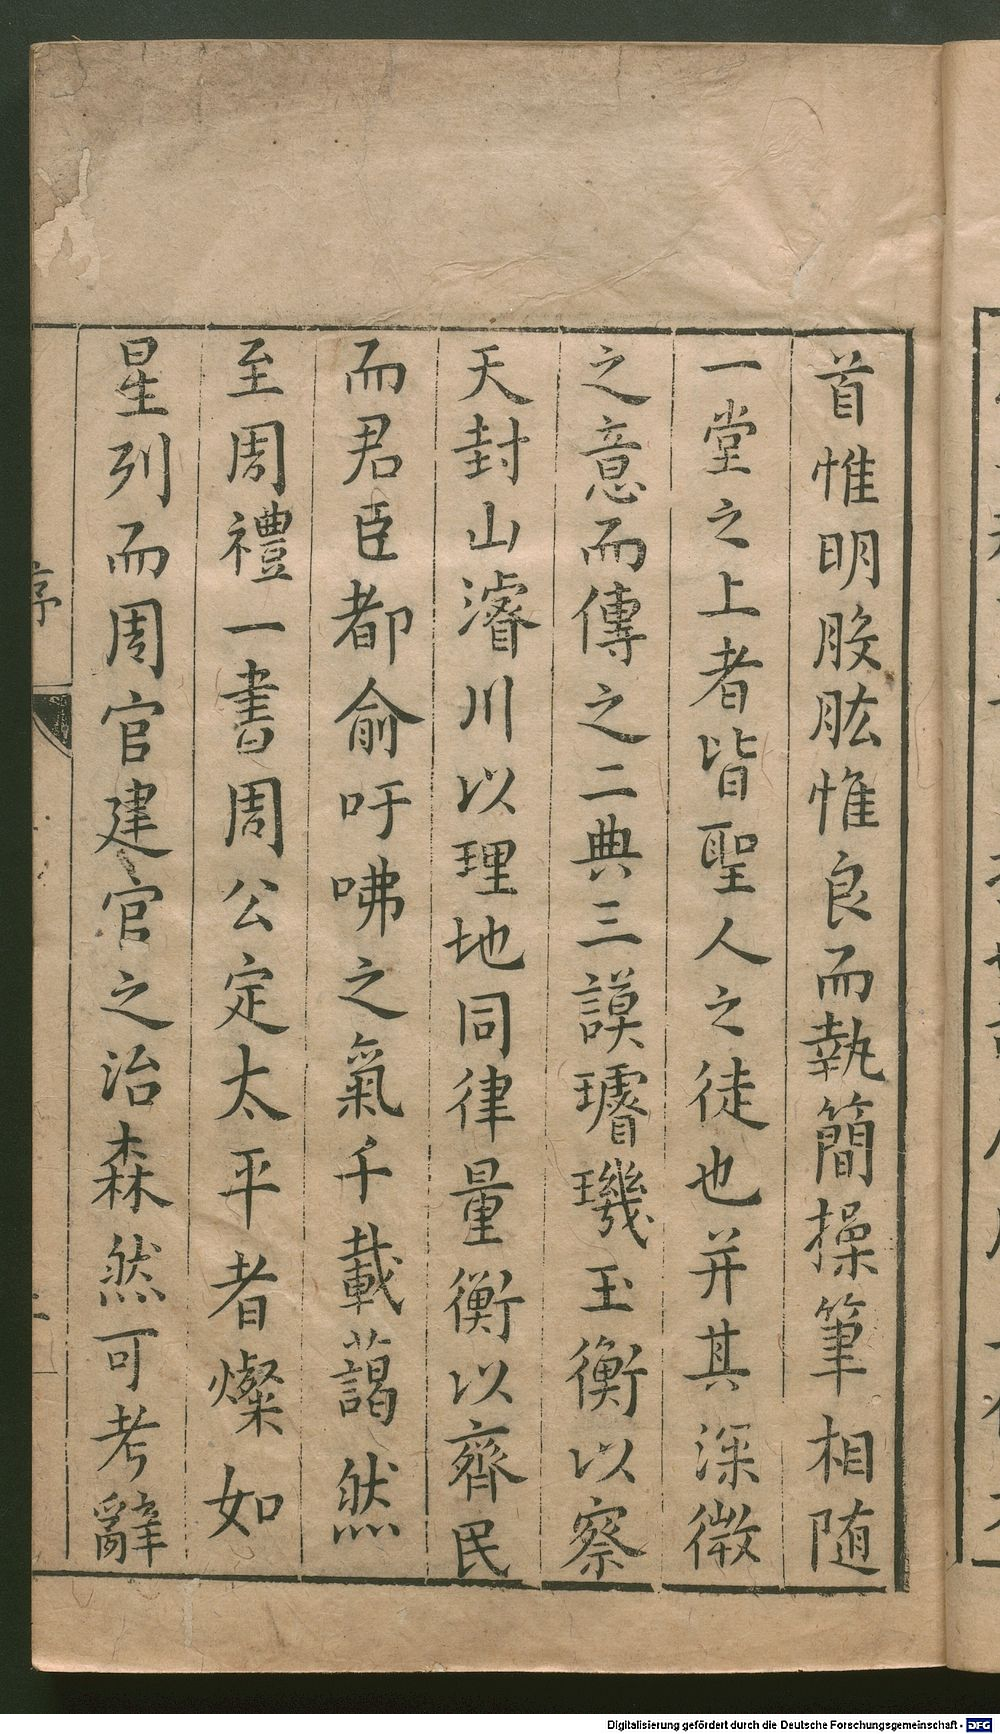 首惟明股肱惟良而執簡操筆相随
一堂之上者皆聖人之徒也并其深微
之意而傳之二典三謨璿璣玉衡以察
天封山濬川以理地同律量衡以齊民
而君臣都俞吁咈之氣千載藹然
至周禮一書周公定太平者燦如
星列而周官建官之治森然可考辭
序
Digitalisierung gefördert durch die Deutsche Forschungsgemeinschaft - DFG